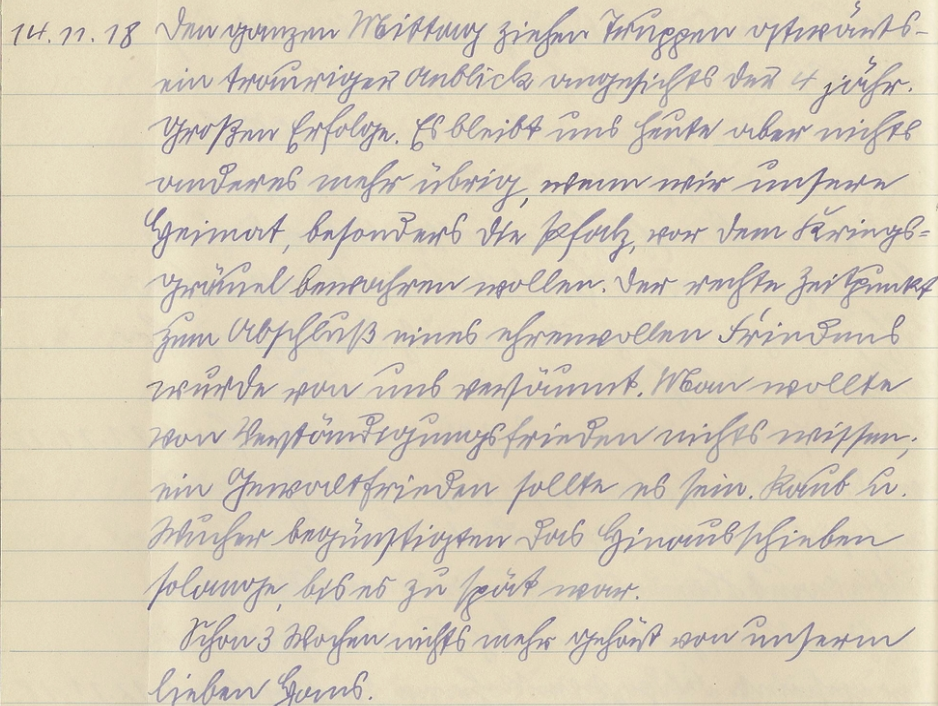 14.11.18 Den ganzen Mittag ziehen Truppen ostwärts-
ein trauriger Anblick angesichts der 4 jähr.
großen Erfolge. Es bleibt uns heute aber nichts
anderes mehr übrig, wenn wir unsere
Heimat, besonders die Pfalz, vor dem Kriegs=
gräuel bewahren wollen. Der rechte Zeitpunkt
zum Abschluß eines ehrenvollen Friedens
wurde von uns versäumt. Man wollte
von Verständigungsfrieden nichts wissen;
ein Gewaltfrieden sollte es sein. Raub u.
Wucher begünstigten das Hinausschieben
solange, bis es zu spät war.
Schon 3 Wochen nichts mehr gehört von unserm
lieben Hans.